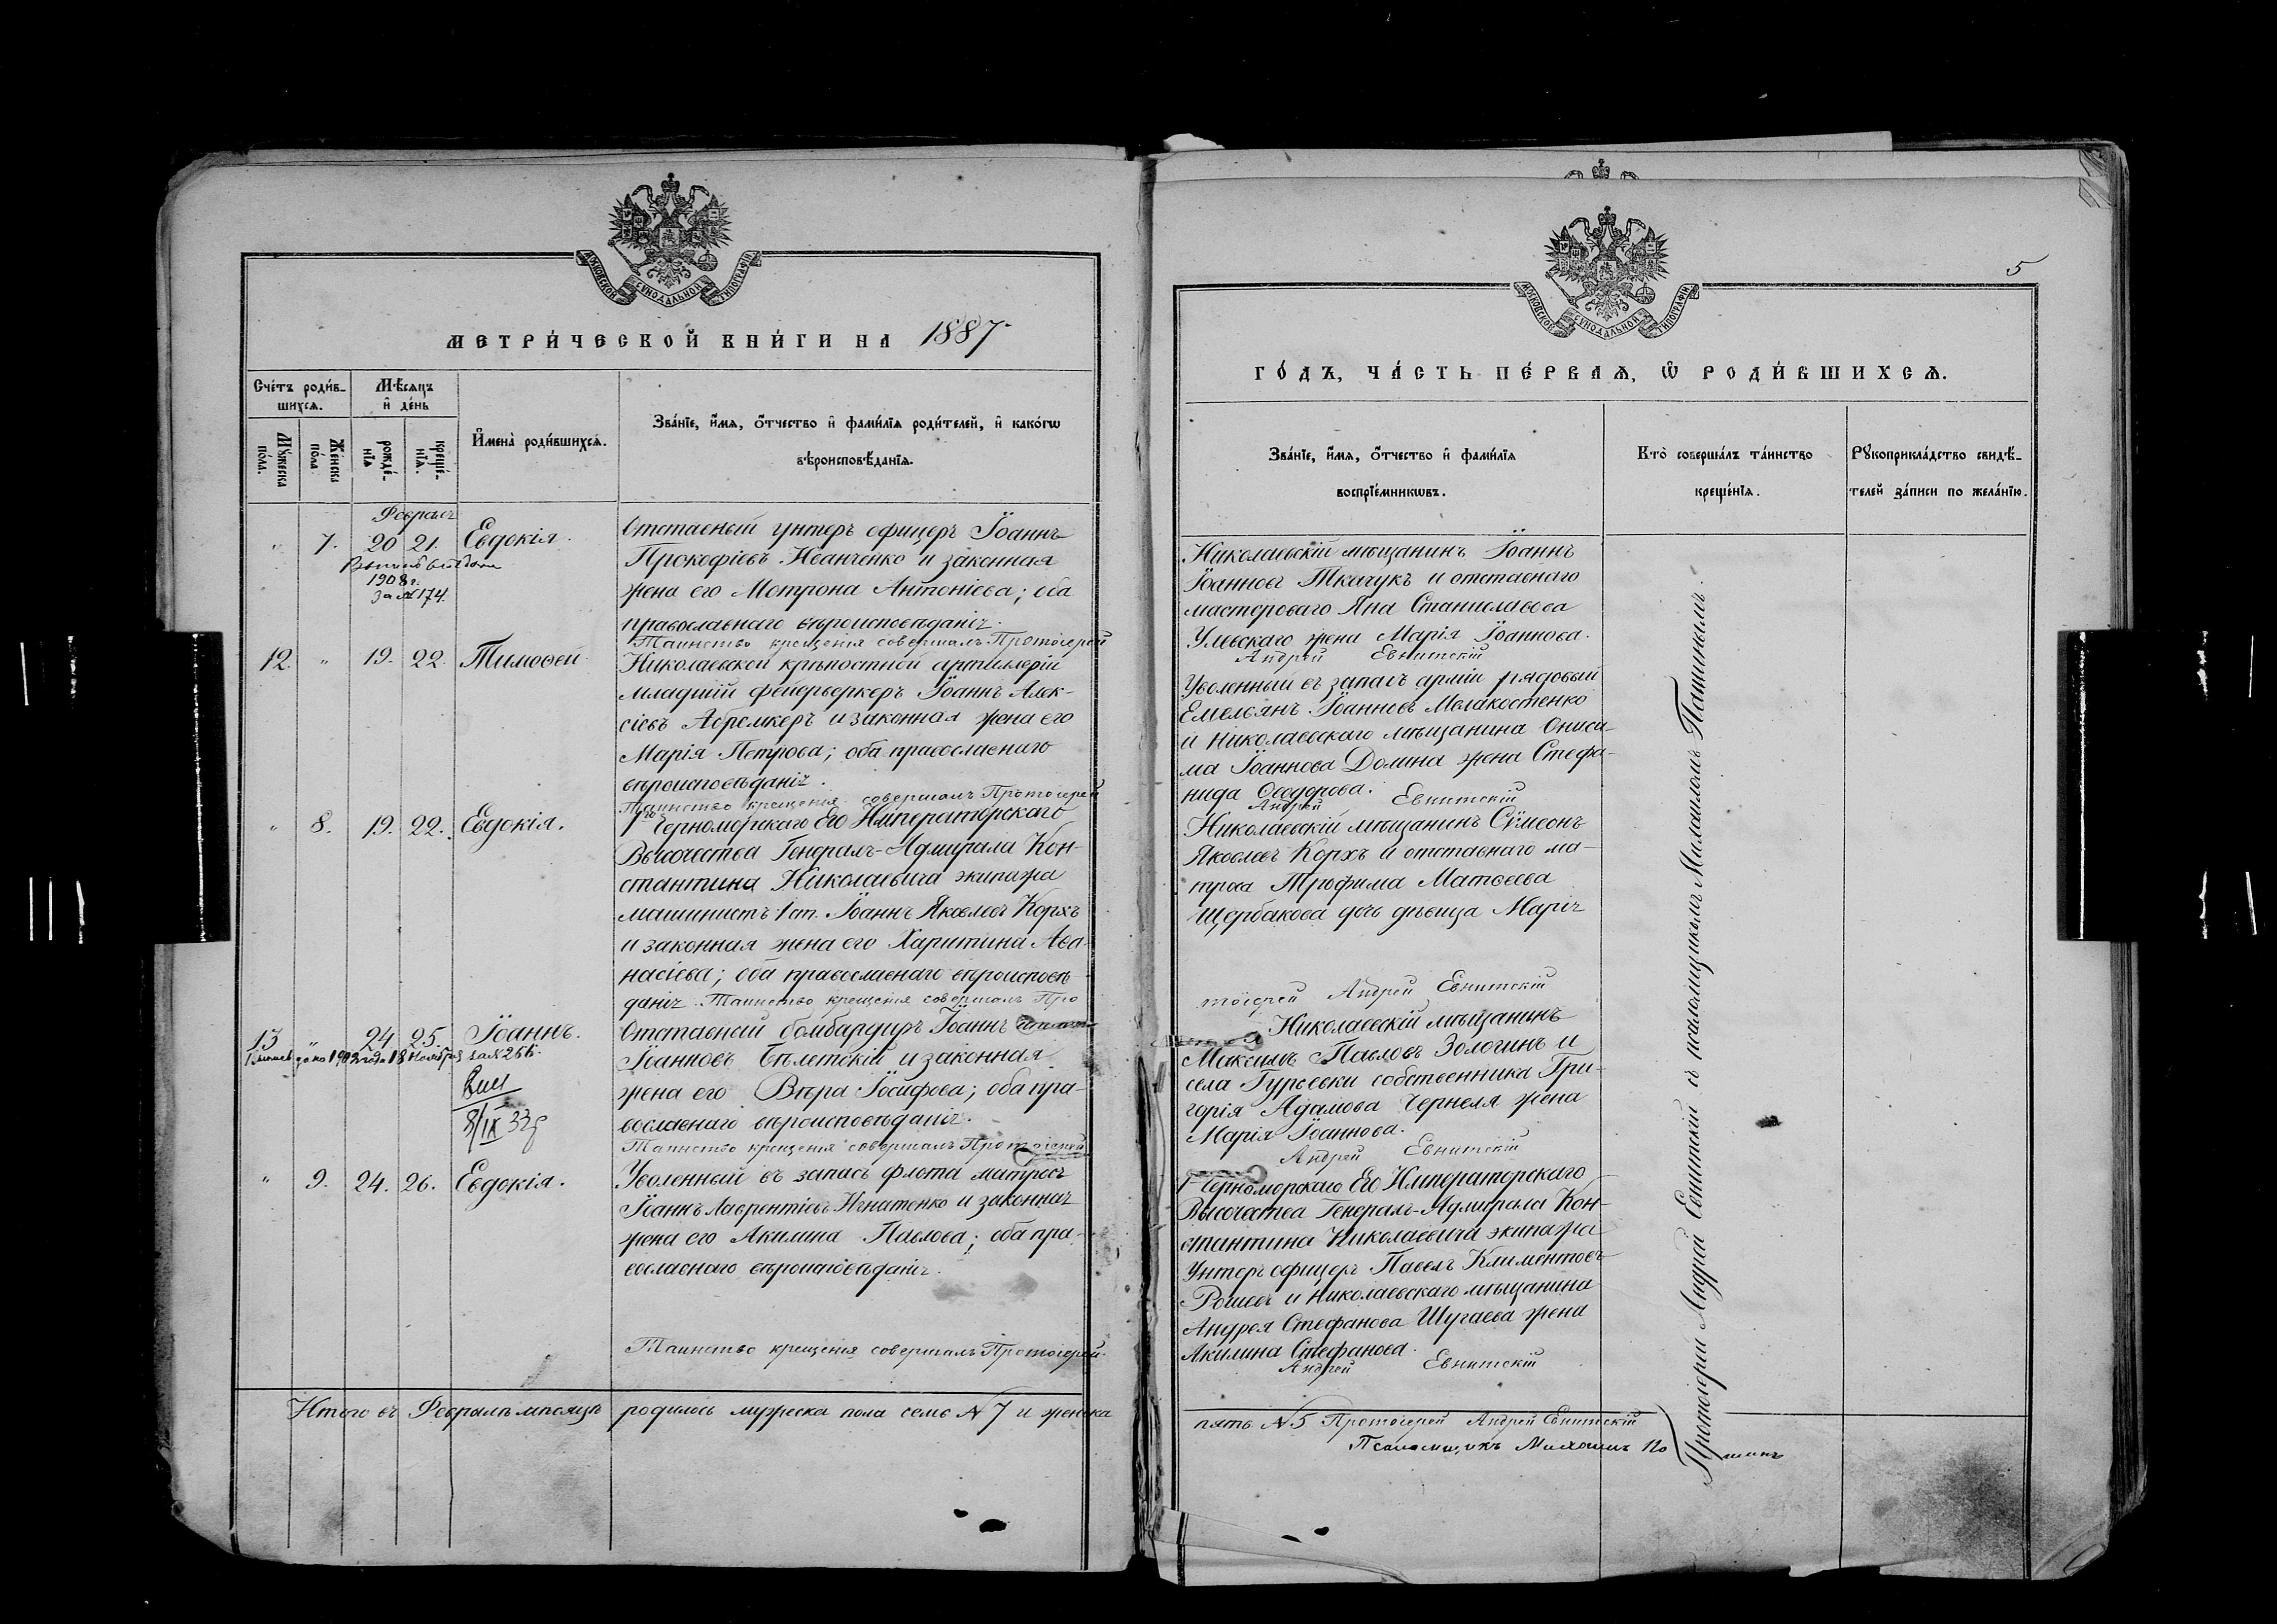 МОСКОВСКОЙ СѴНОДАЛЬНОЙ ТИПОГРАФІИ
МЕТРИ́ЧЕСКОЙ КНИ́ГИ НА 1887
Сче́тъ роди́в-
шихсѧ.
Мꙋжеска
по́ла.
Же́нска
по́ла
Мѣ́сѧцъ
и҆ де́нь
рожде́-
нїѧ
креще́-
нїѧ.
И҆мена̀ роди́вшихсѧ.
Зва́нїе, и҆́мѧ, ѻ҆́тчество и҆ фами́лїѧ роди́телей, и҆ како́гѡ
вѣроисповѣ́данїѧ.
Февраль
" 7. 20 21. Евдокія.
1908 г.
За № 174.
Отставный унтеръ офицеръ Іоаннъ
Прокофіевъ Иванченко и законная
жена его Мотрона Антоніева; оба
православнаго вѣроисповѣданія.
Таинство крещенія совершалъ Протоіерей
12. " 19. 22. Тимоѳей.
Николаевской крѣпостной артиллеріи
младшій фейерверкеръ Іоаннъ Алек-
сіевъ Абрамкеръ и законная жена его
Марія Петрова; оба православнаго
вѣроисповѣданія.
Таинство крещенія совершалъ Протоіерей
" 8. 19. 22. Евдокія.
Черноморскаго Его Императорскаго
Высочества Генералъ-Адмирала Кон-
стантина Николаевича экипажа
машинистъ 1 ст. Іоаннъ Яковлевъ Коржъ
и законная жена его Харитина Аѳа-
насіева; оба православнаго вѣроисповѣ-
данія. Таинство крещенія совершалъ Про
13 " 24 25. Іоаннъ.
года 18 Ноября за № 266.
8/IX 33
Отставной бомбардиръ Іоаннъ
Іоанновъ Бѣлетскій и законная
жена его Вѣра Іосифова; оба пра-
вославнаго вѣроисповѣданія.
Таинство крещенія совершалъ Протоіерей
" 9. 24. 26. Евдокія.
Уволенный въ запасъ флота матросъ
Іоаннъ Лаврентіевъ Игнатенко и законная
жена его Акилина Павлова; оба пра-
вославнаго вѣроисповѣданія.
Таинство крещенія совершалъ Протоіерей
Итого въ Февралѣ мѣсяцѣ родилось мужеска пола семь № 7 и женска
5
МОСКОВСКОЙ СѴНОДАЛЬНОЙ ТИПОГРАФІИ
ГО́ДЪ, ЧА́СТЬ ПЕ́РВАѦ, Ѡ҆ РОДИ́ВШИХСѦ.
Зва́нїе, и҆́мѧ, ѻ҆́тчество и҆ фами́лїѧ
воспрїе́мникѡвъ.
Кто̀ соверша́лъ та́инство
креще́нїѧ.
Рꙋкоприкла́дство свидѣ́-
телей за́писи по жела́нїю.
Николаевскій мѣщанинъ Іоаннъ
Іоанновъ Ткачукъ и отставнаго
мастероваго Яна Станиславова
Улевскаго жена Марія Іоаннова.
Андрей Евнитскій
Уволенный въ запасъ арміи рядовый
Емельянъ Іоанновъ Малакостенко
и Николаевскаго мѣщанина Ониси-
ма Іоаннова Долина жена Стефа-
нида Ѳеодорова.
Андрей Евнитскій
Николаевскій мѣщанинъ Сѵмеонъ
Яковлевъ Коржъ и отставнаго ма-
троса Трофима Матвеева
Щербакова дочь дѣвица Марія
тоіерей Андрей Евнитскій
Николаевскій мѣщанинъ
Максимъ Павловъ Зологинъ и
села Гурьевки собственника Гри-
горія Адамова Чернеля жена
Марія Іоаннова.
Андрей Евнитскій
Черноморскаго Его Императорскаго
Высочества Генералъ-Адмирала Кон-
стантина Николаевича экипажа
Унтеръ офицеръ Павелъ Климентовъ
Рошевъ и Николаевскаго мѣщанина
Андрея Стефанова Шугаева жена
Акилина Стефанова.
Андрей Евнитскій
пять № 5 Протоіерей Андрей Евнитскій
Псаломщикъ Михаилъ Па
шинъ
Протоіерей Андрей Евнитскій съ псаломщикомъ Михаиломъ Пашинымъ.